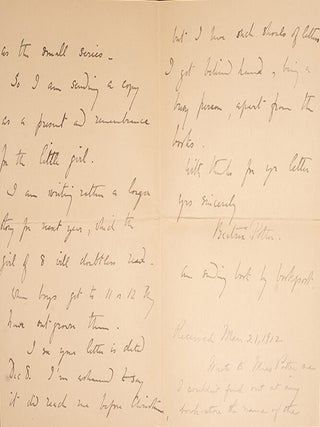 as the small series -
So I am sending a copy
as a present and remembrance
for the little girl.
I am writing rather a longer
story for next year, which the
girl of 8 will doubtless read.
When boys get to 11 or 12 they
have out-grown them.
I see your letter is dated
Dec 8. I'm ashamed to say
it did reach me before Christmas,
but I have such shoals of letters
I got behind hand, being a
busy person, apart from the
books.
With thanks for yr letter
yrs sincerely
Beatrix Potter.
am sending book by bookpost.
Received Mar 21, 1912.
Wrote to Miss Potter
I couldn't find out at any
book store the name of the